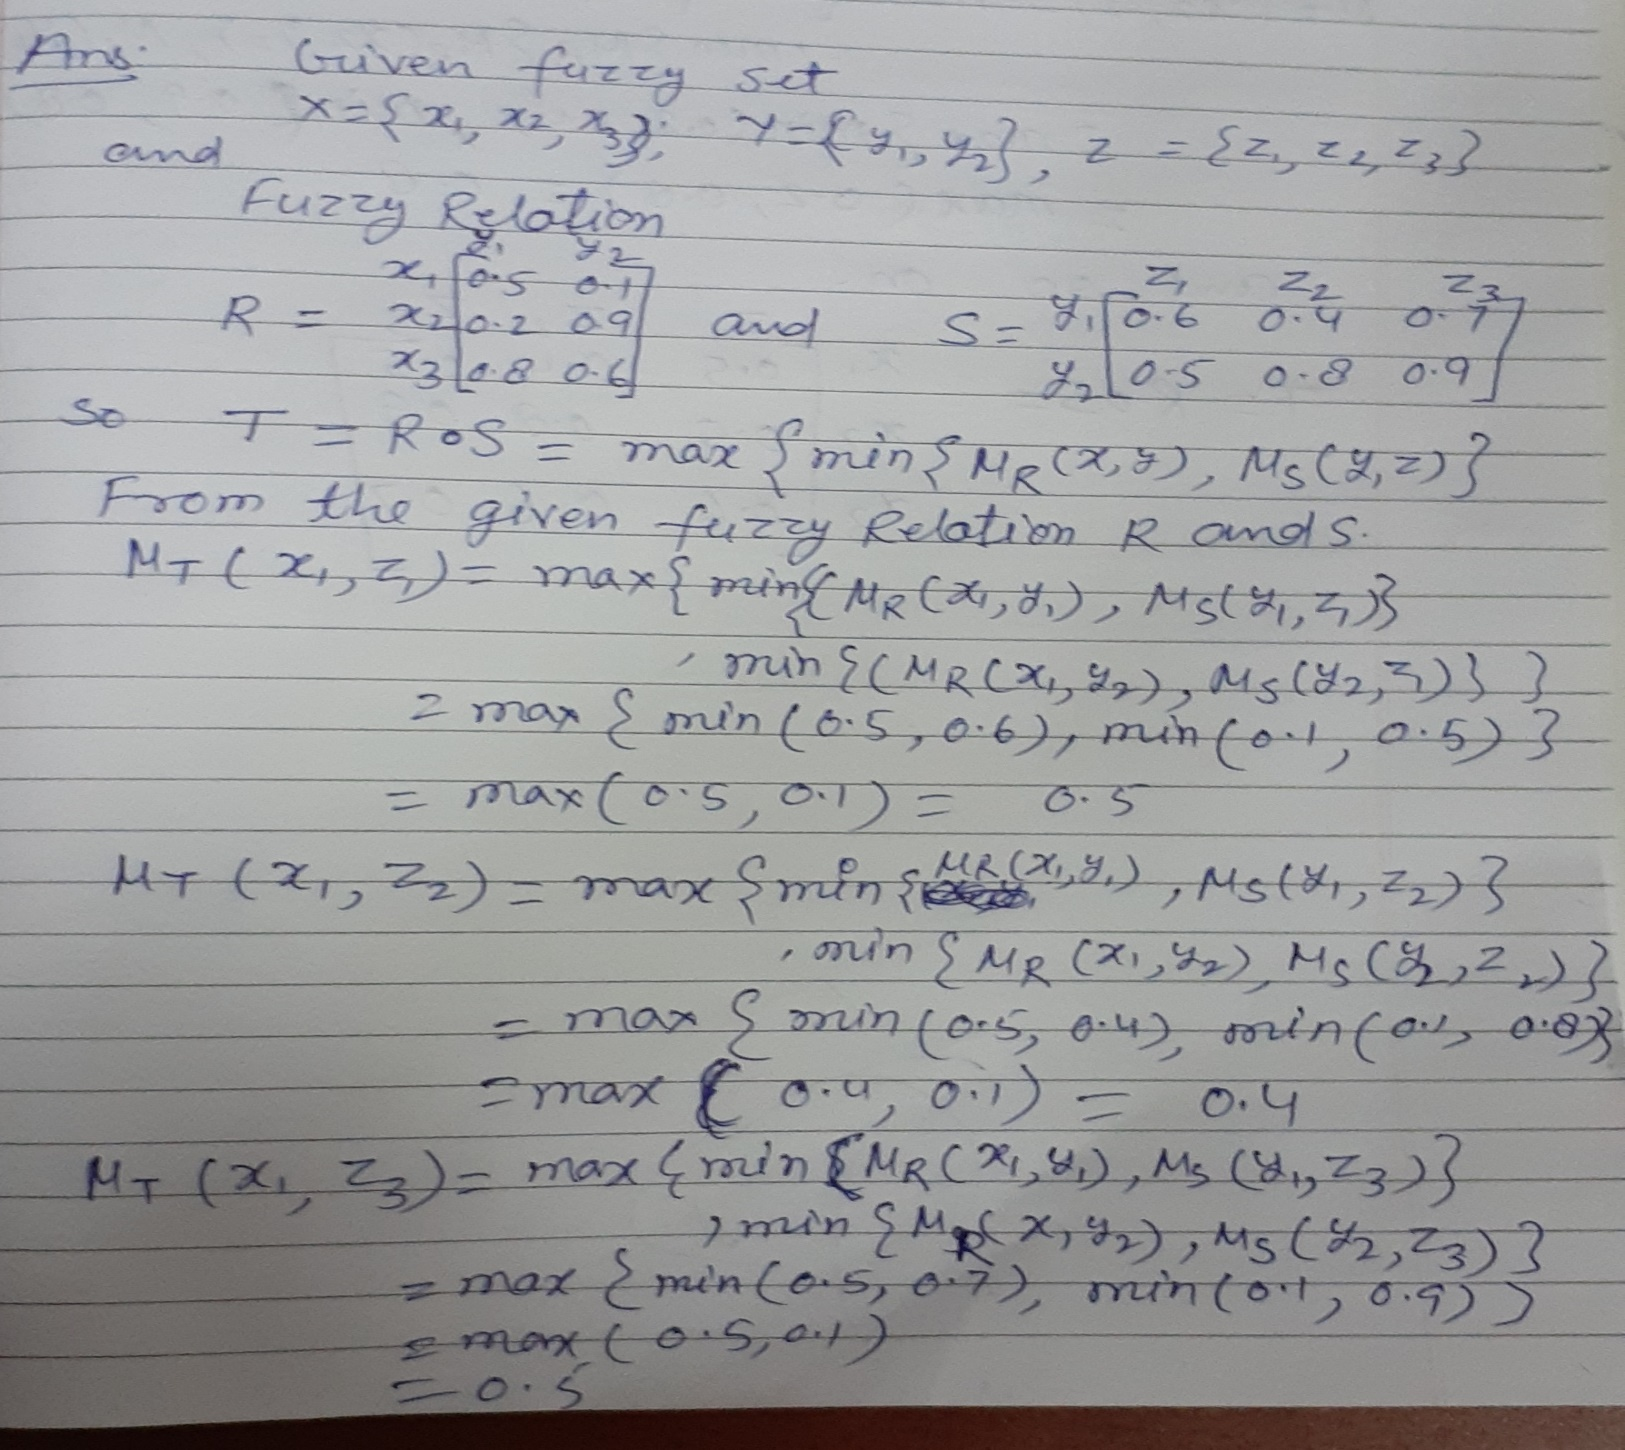 Ans: Given fuzzy set
X={x₁, x₂, x₃}; Y={y₁, y₂}, Z = {z₁, z₂, z₃}
and
Fuzzy Relation
y₁ y₂
x₁ [0.5 0.1]
z₁ z₂ z₃
R = x₂ [0.2 0.9] and S = y₁ [0.6 0.4 0.7]
x₃ [0.8 0.6] y₂ [0.5 0.8 0.9]
So T = R∘S = max {min{μR(x,y), μS(y,z)}
From the given fuzzy Relation R and S.
μT(x₁, z₁) = max{min{μR(x₁,y₁), μS(y₁,z₁)}
, min{(μR(x₁,y₂), μS(y₂,z₁)} }
= max { min(0.5, 0.6), min(0.1, 0.5) }
= max(0.5, 0.1) = 0.5
μT(x₁, z₂) = max {min{μR(x₁,y₁), μS(y₁,z₂)}
, min {μR(x₁,y₂), μS(y₂,z₂)}
= max { min(0.5, 0.4), min(0.1, 0.8)}
= max (0.4, 0.1) = 0.4
μT(x₁, z₃) = max {min {μR(x₁,y₁), μS(y₁,z₃)}
, min {μR(x,y₂), μS(y₂,z₃)}
= max {min(0.5, 0.7), min(0.1, 0.9)}
= max (0.5, 0.1)
= 0.5